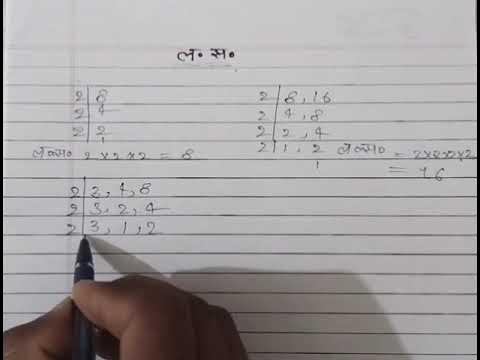 ल॰ स॰
2 8
2 4
2 2
1
ल॰स॰ 2 x 2 x 2 = 8
2 8, 16
2 4, 8
2 2, 4
2 1, 2
1
ल॰स॰ = 2x2x2x2
= 16
2 3, 4, 8
2 3, 2, 4
2 3, 1, 2